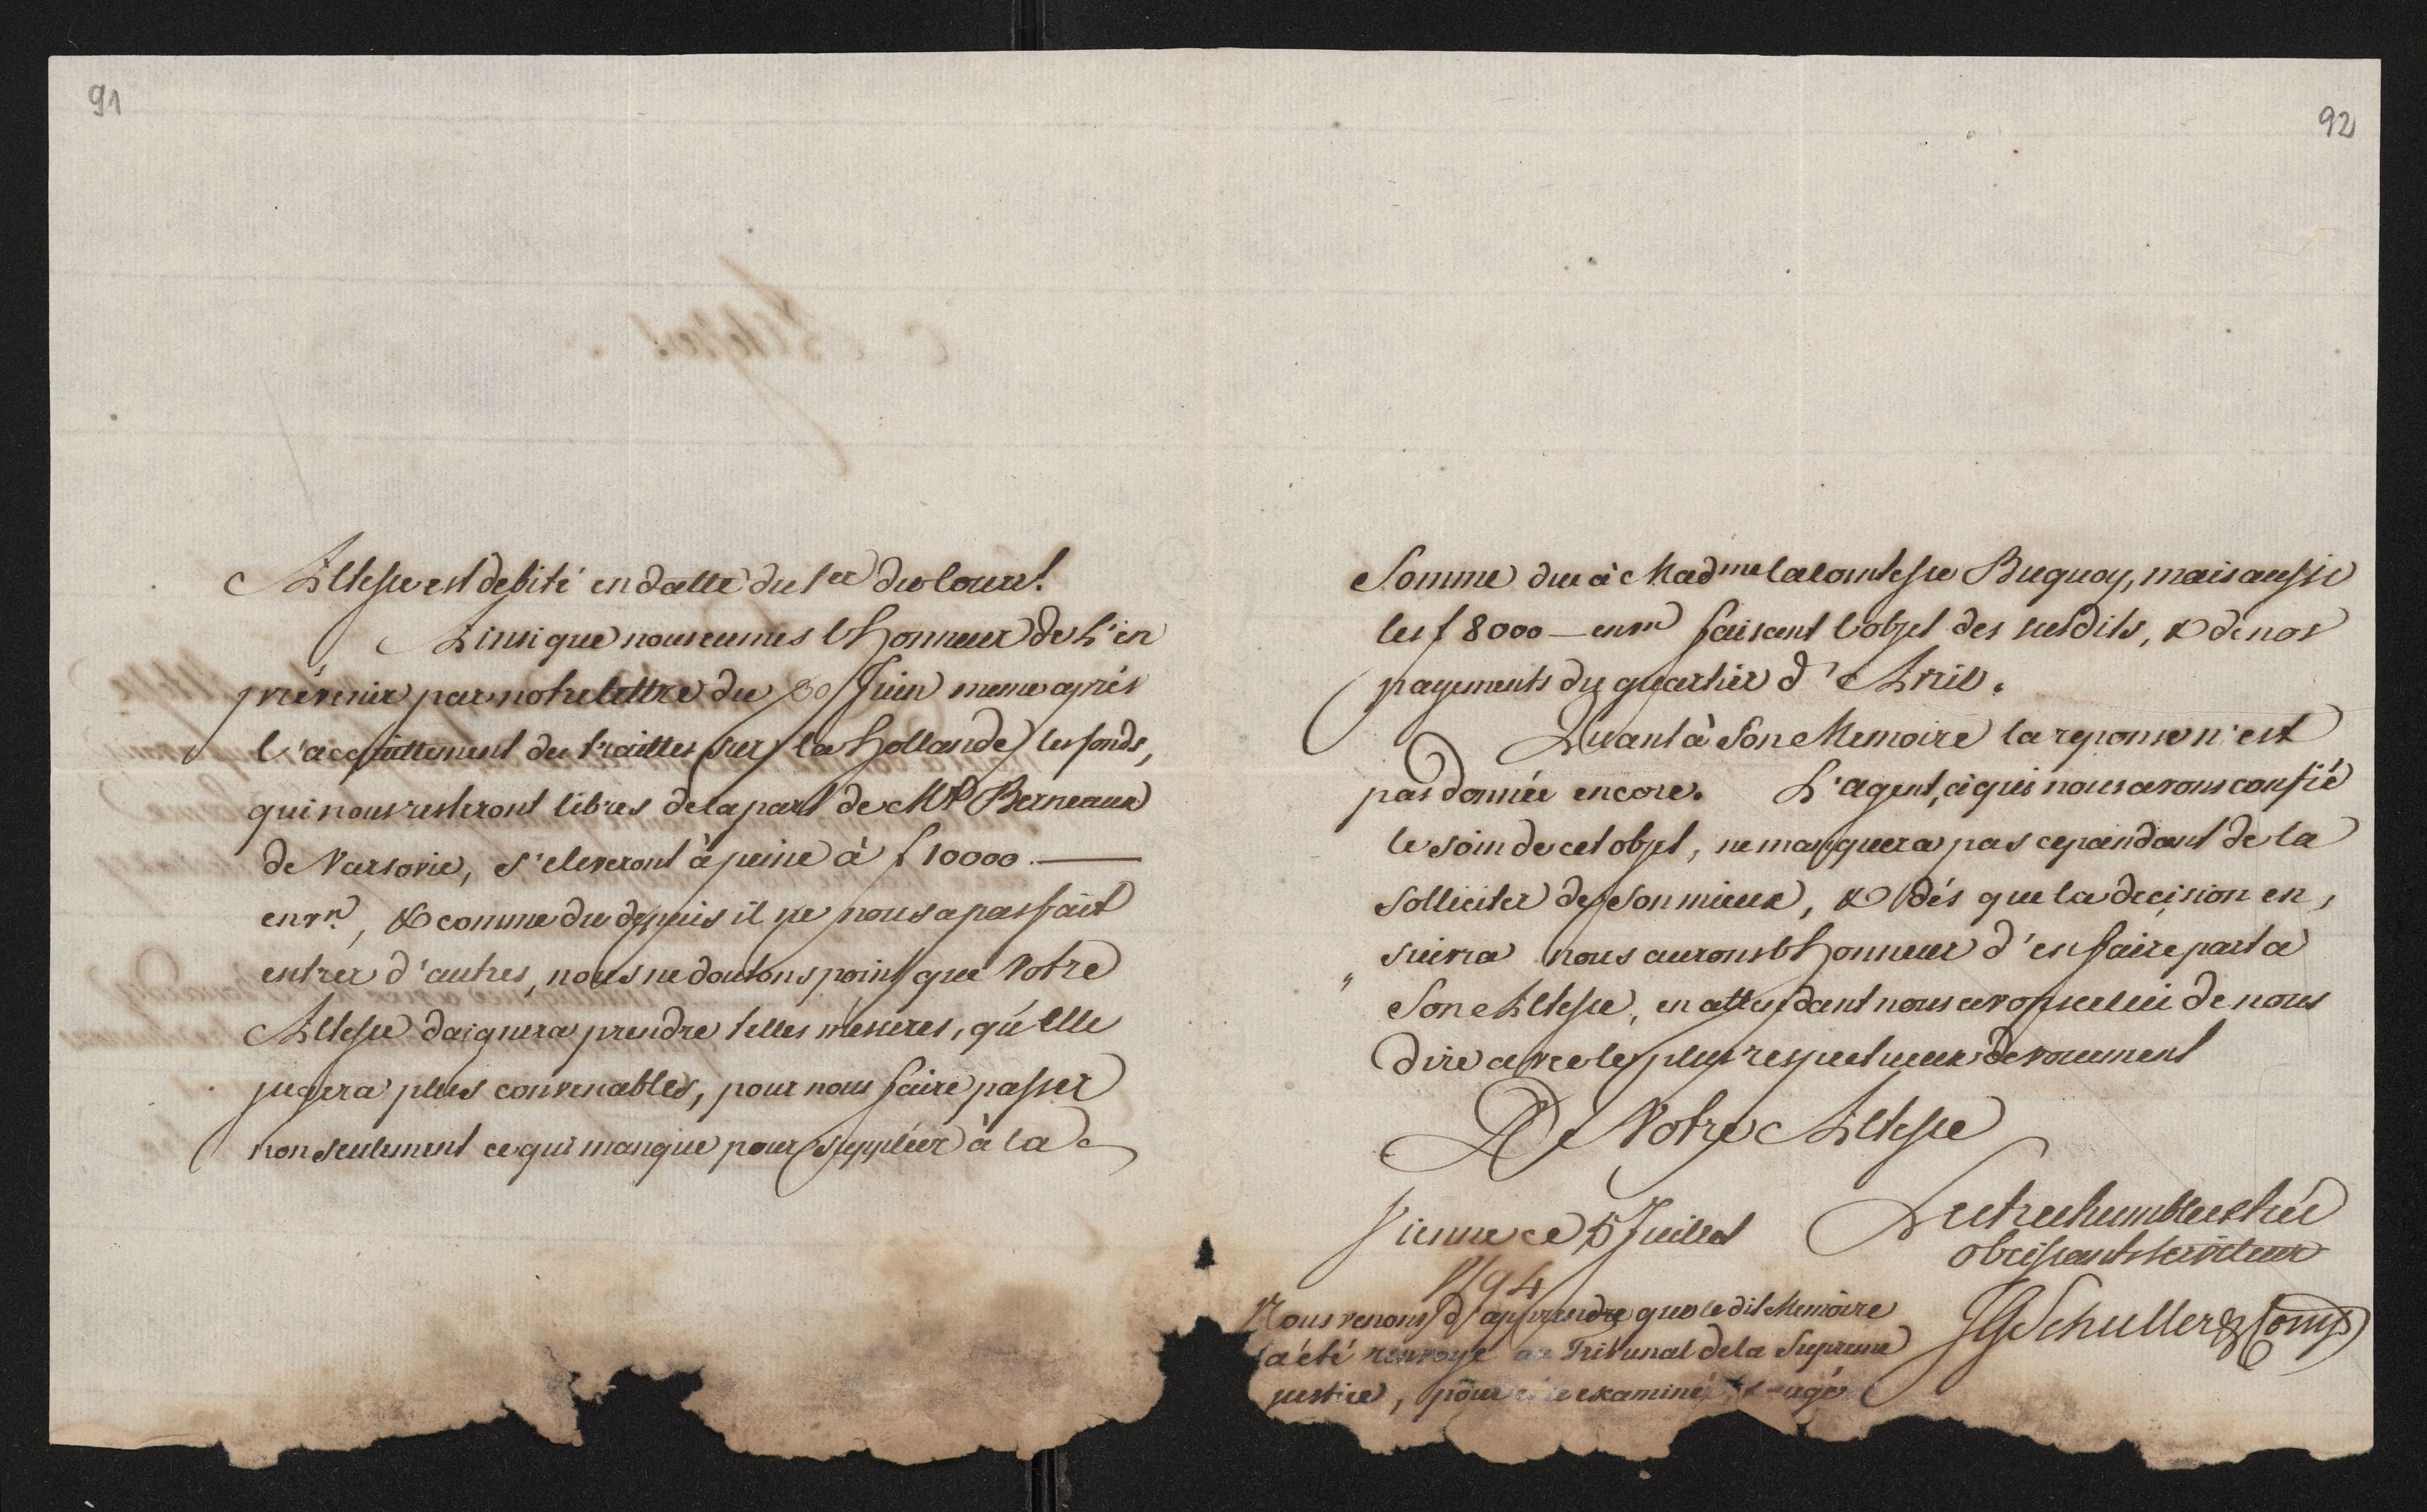 91
Altesse est debité en datte du 1er du Cour.t
Ainsi que nous eumes l'Honneur de L'en
prévenir par notre lettre du 30 Juin meme aprés
l'acquittement des traittes sur la Hollande les fonds,
qui nous resteront libres de la part de Mr Berneaux
de Varsovie, s'eleveront à peine à f 10000.—
envn, & comme du depuis il ne nous a pas fait
entrer d'autres, nous ne doutons point que Votre
Altesse daignera prendre telles mésures, qu'Elle
jugera plus convenables, pour nous faire passer
non seulement ce qui manque pour suppléer à la
92
Somme due à Madme la Comtesse Buquoy, mais aussi
les f 8000— envn faisant l'objet des susdits, & de nos
payements du quartier d'Avril.
Quant à Son Memoire la reponse n'est
pas donnée encore. L'agent, à qui nous avons confié
le soin de cet objet, ne manquera pas cependant de la
solliciter de son mieux, & dés que la decision en,
„ suivra nous aurons l'Honneur d'en faire part à
Son Altesse, en attendant nous avons celui de nous
dire avec le plus respectueux devouement
De Votre Altesse
Vienne ce 5 Juillet
1794
Le tres humble & tres
obeissant serviteur
JG Schuller & Comp
Nous venons d'apprendre que le dit Memoire
a été renvoyé au Tribunal de la Supreme
justice, pour etre examiné &